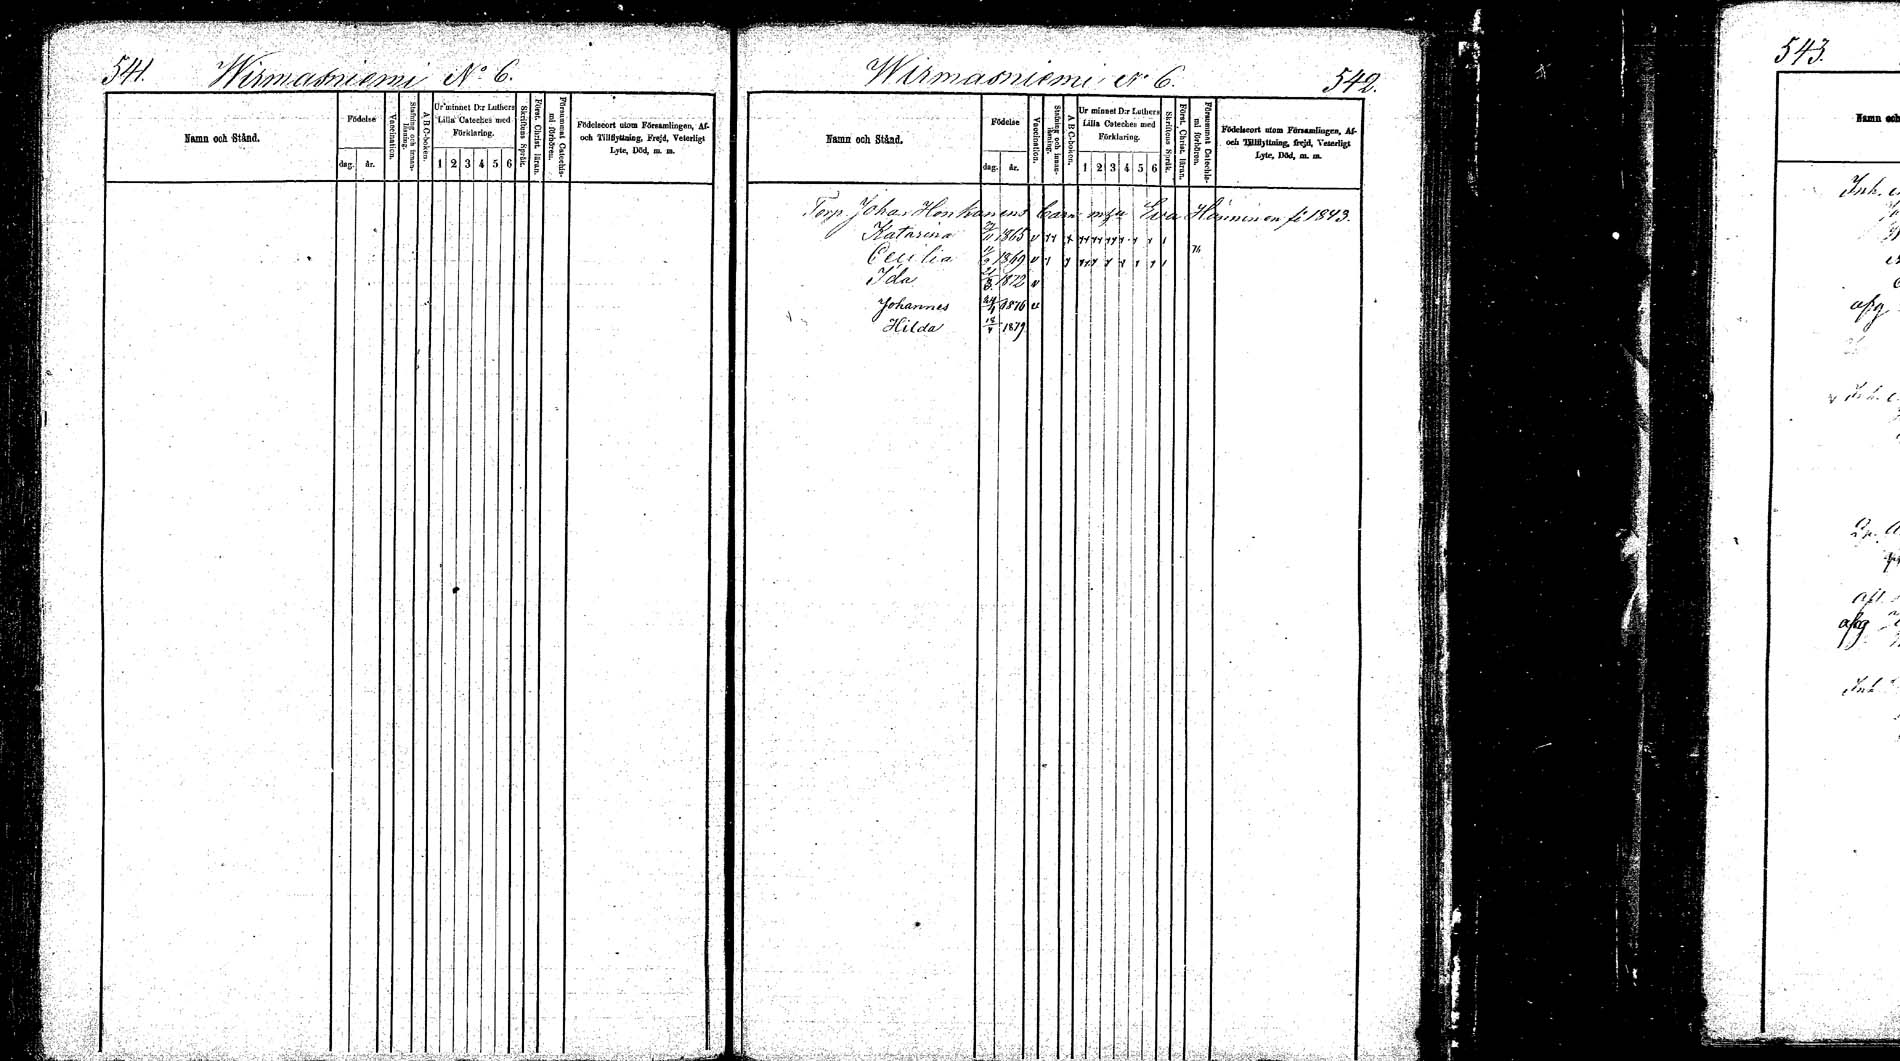 541. Wirmasniemi No 6.
Namn och Stånd.
Födelse
dag. år.
Vaccination.
Stafning och innanläsning.
A B C-boken.
Ur minnet D:r Luthers
Lilla Cateches med
Förklaring.
1 2 3 4 5 6
Skriftens Språk.
Först. Christ. läran.
Försummat Catechismi förhören.
Födelseort utom Församlingen, Af-
och Tillflyttning, Frejd, Veterligt
Lyte, Död, m. m.
Wirmasniemi No 6. 542.
Namn och Stånd.
Födelse
dag. år.
Vaccination.
Stafning och innanläsning.
A B C-boken.
Ur minnet D:r Luthers
Lilla Cateches med
Förklaring.
1 2 3 4 5 6
Skriftens Språk.
Först. Christ. läran.
Försummat Catechismi förhören.
Födelseort utom Församlingen, Af-
och Tillflyttning, frejd, Veterligt
Lyte, Död, m. m.
Torp. Johan Honkanens barn m. h. u Eva Hänninen f. 1843.
Katarina 1865
Cecilia 1869
Ida 1872
Johannes 1876
Hilda 1879
543.
Namn och
Inh.
afg